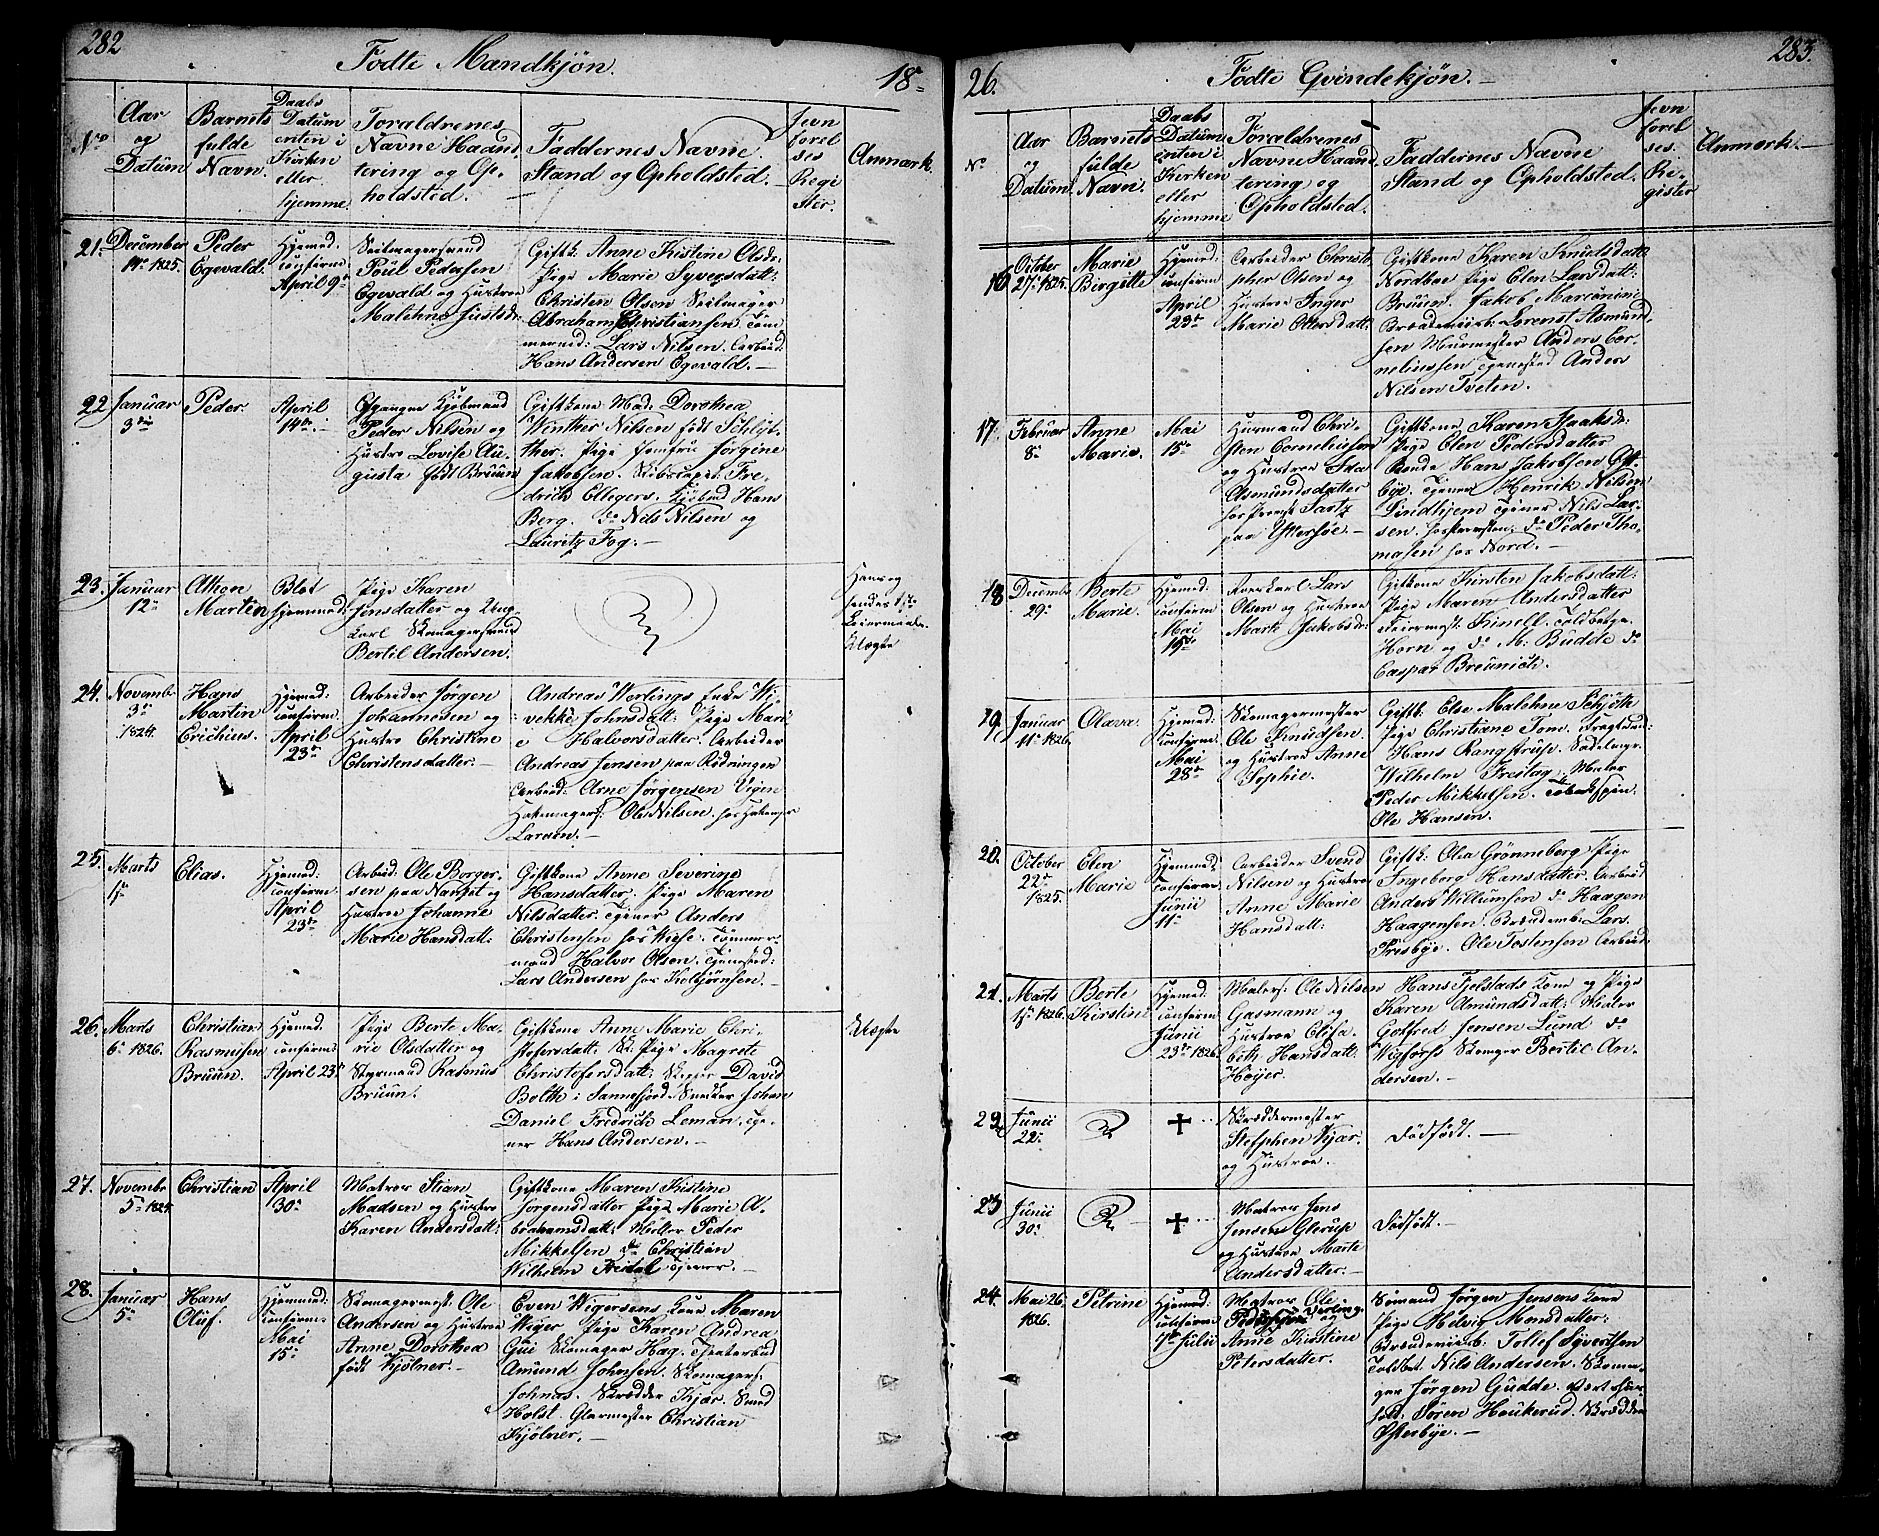 282
Födte Mandkjön.
18=
No
Aar
og
Datum
Barnets
fulde
Navn.
Daabs
Datum
enten i
Kirken
eller
hjemme.
Foraldrenes
Navne Haand
tering og Op-
holdsted.
Faddernes Navne
Stand og Opholdsted.
Jevn
forel
ses
Regi
ster.
Anmærk.
21. December
14de 1825.
Peder
Egevald.
Hjemmed:
confirm:
April 9de
Seilmagersvend
Poul Pedersen
Egevald og Hustroe
Malehne Justsdr:
Giftk: Anne Kistine Olsdr.
Pige Marie Syversdatt:
Christen Olsen Seilmager
Abraham Christiansen. Töm
mermd: Lars Nilsen. Arbeid:
Hans Andersen Egevald.
22 Januar
3die
Peder.
April
14de
Afgangne Kjöbmand
Peder Nilsen og
Hustro Lovise Au-
gusta födt Bruun
Giftkone Mad: Dorothea
Winther Nilsen födt Schlyt-
ther. Pige Jomfru Jörgine
Jakobsen. Skibscapit: Fre-
derich Ellegers. Kjöbmd Hans
Berg. do Nils Nilsen og
Lauritz Fog.
23. Januar
12te
Anton
Martin
Blot
hjemmed:
Pige Karen
Jensdatter og Ung-
karl Skomagersvend
Bertil Andersen.
Hans og
hendes 1ste
Leiermaal.
Uægte
24. Novembr
3de
1824.
Hans
Martin
Erichius.
Hjemmed:
confirm:
April
23de
Arbeider Jörgen
Johannesen og
Hustroe Christine
Christensdatter.
Andreas Werlings Enke Wi-
vekke Johnsdatt: Pige Mari
e Halvorsdatter. Arbeider
Andreas Jensen paa Rödningen
Arbeid: Arne Jörgensen Vigen
Hattemagers: Ole Nilsen. hos
Larsen.
25. Marts
1ste
Elias.
Hjemmed:
confirm:
April
23de
Arbeid: Ole Borger-
sen paa Nanset og
Hustroe Johanne
Marie Hansdatt:
Giftkone Anne Severine
Hansdatter. Pige Maren
Nilsdatter. Tjener Anders
Christensen hos Wiese. Tömmer-
mand Halvor Olsen. Tjenested:
Lars Andersen hos Kolbjörnsen.
26. Marts
6te 1826.
Christian
Rasmusen
Bruun.
Hjemmed:
confirm:
April 23de
Pige Berte Ma-
rie Olsdatter og
Styrmand Rasmus
Bruun.
Giftkone Anne Marie Chri-
stofersdatt: Pige Magrete
Christofersdatt: David
Bolth i Sannefjord. Snedker Johan
Daniel Fredrich Leman. Tje-
ner Hans Andersen.
Uægte
27. Novembr
5te 1825.
Christian
April
30te
Matros Stian
Madsen og Hustroe
Karen Andersdatt:
Giftkone Maren Kistine
Jörgensdatter Pige Marie A-
brahamsdatt: Möller Peder
Mikkelsen do Christian
Wilhelm Fredal Tjener.
28. Januar
5te
Hans
Oluf.
Hjemmed:
confirm:
Mai
15de
Skomagermest: Ole
Andersen og Hustroe
Anne Dorothea
födt Kjölner.
Even Wigersens Kone Maren
Wiger Pige Karen Andrea
Gui Skomager Hag.
Amund Johnsen. Skomagers:
Johnas. Skrædder Kjær. Smed
Holst. Glarmester Christian
Kjölner.
26.
Födte Qvindekjön.
283.
No
Aar
og
Datum.
Barnets
fulde
Navn.
Daabs
Datum
enten i
Kirken
eller
hjemme
Foraldrenes
Navne Haand
tering og
Opholdsted.
Faddernes Navne
Stand og Opholdsted.
Jevn
forel
ses.
Re-
gister
Anmærk:
16. October
27de 1825.
Marie
Birgitte
Hjemmed:
confirm:
April
23de
Arbeider Christo
pher Olsen og
Hustroe Inger
Marie Ottersdatt:
Giftkone Karen Knutsdatt:
Nordboe Pige Elen Larsdatt:
Bruun. Jakob Marcunini
Brædemiст: Lorenst Asmund-
sen Murmester Anders Cor-
neliussen Tjenested Anders
Nilsen Tveten.
17. Februar
8de
Anne
Marie.
Mai
15de
Husmand Chri-
sten Corneliussen
og Hustroe Ida
Asmundsdatter
hos Lartz
paa Ystersöe.
Giftkone Karen Isaksdr:
Pige Elen Pedersdatter
Bonde Hans Jakobsen Öst-
bye. Tjener Henrik Nilsen
Lindhjem Tjener Nils Lar-
sen. do Peder Tho-
masen hos Nord.
18 Decembr
29de
Berte
Marie.
Hjemmed:
confirm:
Mai
15de
Lars
Olsen og Hustroe
Marte Jakobsdr:
Giftkone Kirsten Jakobsdatt:
Pige Maren Andersdatter
Feiermest: Kinell. Toldbetje.
Horn og do M. Budde do
Caspar Breunich.
19. Januar
11te 1826.
Olava.
Hjemmed:
confirm:
Mai
28de
Skomagermester
Ole Knudsen.
og Hustroe Anne
Sophie.
Giftk: Else Malehne Schjöth
Pige Christiane Tom.
Hans Rangstrup. Sadelmgr.
Wilhelm Freitag. Maler
Peder Mikkelsen. Tobakspin.
Ole Hansen.
20. October
22de
1825.
Elen
Marie
Hjemmed:
confirm:
Junii
11te
Arbeider Svend
Nilsen og Hustroe
Anne Marie
Hansdatt:
Giftk: Olea Grönneberg Pige
Ingeborg Hansdatter. Arbeid
Anders Willumsen do Haagen
Haagensen. Lars
Friesbye. Ole Tostensen Arbeid:
21. Marts
1ste 1826.
Berte
Kirstine
Hjemmed:
confirm:
Junii
23de 1826.
Malers: Ole Nilsen
Gasmann og
Hustroe Elisa-
beth Hansdatt:
Höyer.
Hans Fjelstads Kone og Pige
Karen Amundsdatt: Maler
Gotfred Jensen Lund do
Wigforss Skomger Bertil An-
dersen.
22 Junii
22de
✝
Skræddermester
Stefphen Kjær.
og Hustroe.
Dödfödt.
23 Junii
30te
✝
Matros Jens
Jensen Glerup
og Hustroe Marte
Andersdatter.
Dödfödt.
24. Mai 26.
1826.
Petrine
Hjemmed:
confirm:
7de Julii
Matros Ole
Verling og
Anne Kirstine
Petersdatter.
Sömand Jörgen Jensens Kone
Pige Helvig Monsdatter:
Tollef Syvertsen
Toldbet: Nils Andersen. Skoma-
ger Jörgen Gudde.
Sören Houkerud. Skrædder
Österbye.